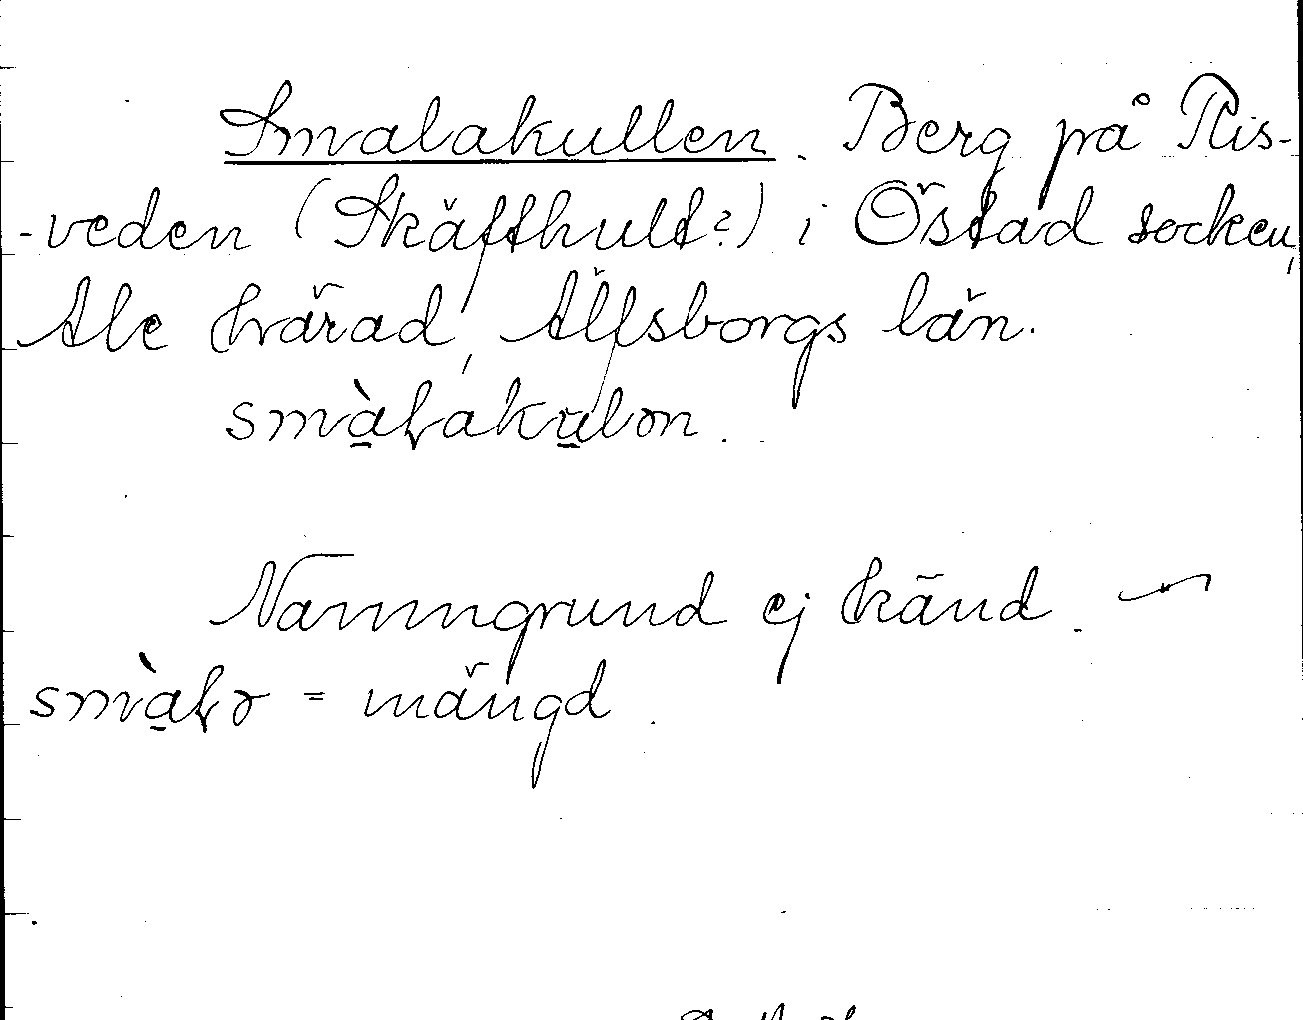 Smalakullen. Berg på Ris-
-veden (Skäfthult?) i Östad socken,
Ale härad, Älfsborgs län.
smàɫakulən.
Namngrund ej känd. —
smàɫə = mängd.